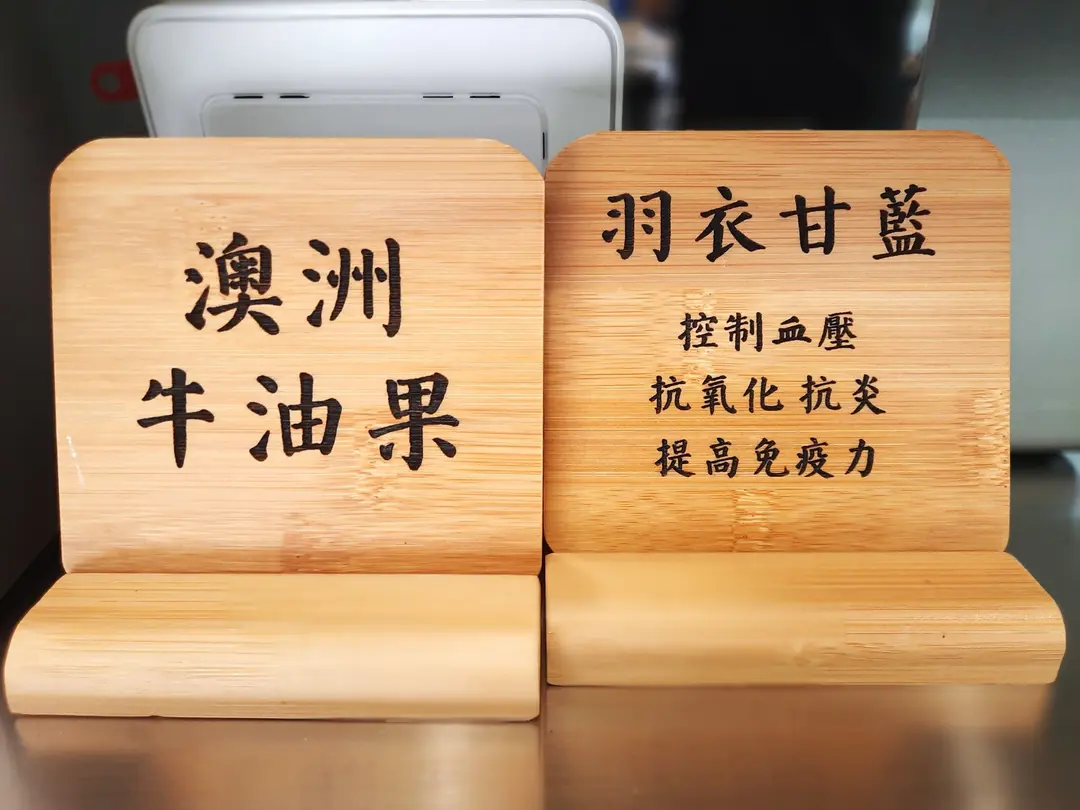 澳洲
牛油果
羽衣甘藍
控制血壓
抗氧化 抗炎
提高免疫力